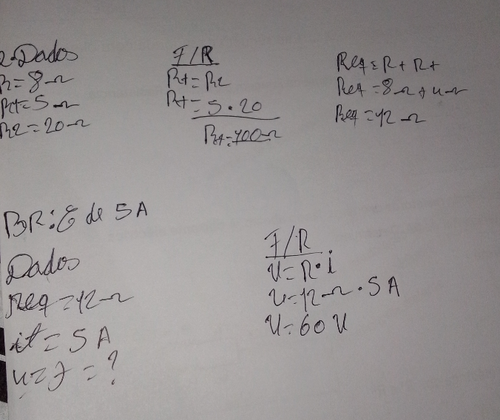 2-Dados
R=8Ω
R1=5Ω
R2=20Ω
F/R
R1=R2
R1=5.20
R1=100Ω
Req=R+R1
Req=8Ω+4Ω
Req=12Ω
BR: É de 5A
Dados
Req=12Ω
it=5A
U=?=?
F/R
U=R.i
U=12Ω.5A
U=60V